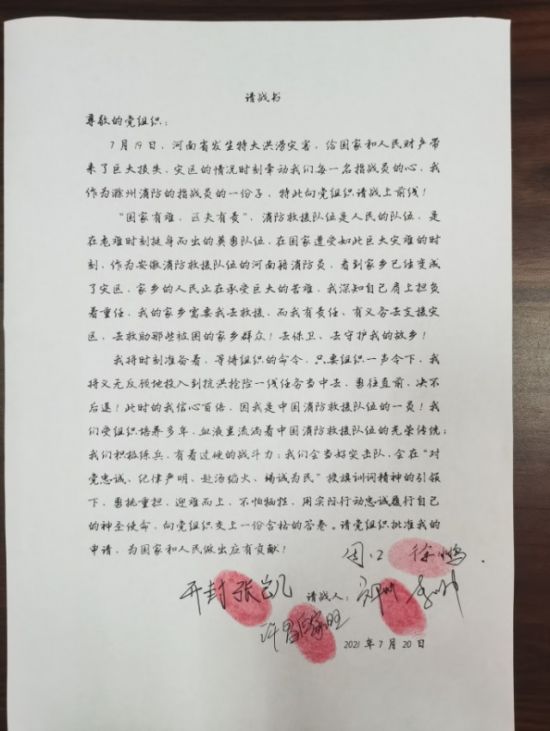 请战书
尊敬的党组织：
7月19日，河南省发生特大洪涝灾害，给国家和人民财产带
来了巨大损失，灾区的情况时刻牵动我们每一名指战员的心，我
作为滁州消防的指战员的一份子，特此向党组织请战上前线！
“国家有难，匹夫有责”，消防救援队伍是人民的队伍，是
在危难时刻挺身而出的英勇队伍，在国家遭受如此巨大灾难的时
刻，作为安徽消防救援队伍的河南籍消防员，看到家乡已经变成
了灾区，家乡的人民正在承受巨大的苦难，我深知自己肩上担负
着重任，我的家乡需要我去救援，而我有责任、有义务去支援灾
区，去救助那些被困的家乡群众！去保卫、去守护我的故乡！
我将时刻准备着，等待组织的命令，只要组织一声令下，我
将义无反顾地投入到抗洪抢险一线任务当中去，勇往直前，决不
后退！此时的我信心百倍，因我是中国消防救援队伍的一员！我
们受组织培养多年，血液里流淌着中国消防救援队伍的光荣传统；
我们积极练兵，有着过硬的战斗力；我们会当好突击队，会在“对
党忠诚、纪律严明、赴汤蹈火、竭诚为民”授旗训词精神的引领
下，勇挑重担，迎难而上，不怕牺牲，用实际行动忠诚履行自己
的神圣使命，向党组织交上一份合格的答卷。请党组织批准我的
申请，为国家和人民做出应有贡献！
周口
开封 张凯 请战人：郑州
许昌
2021年7月20日